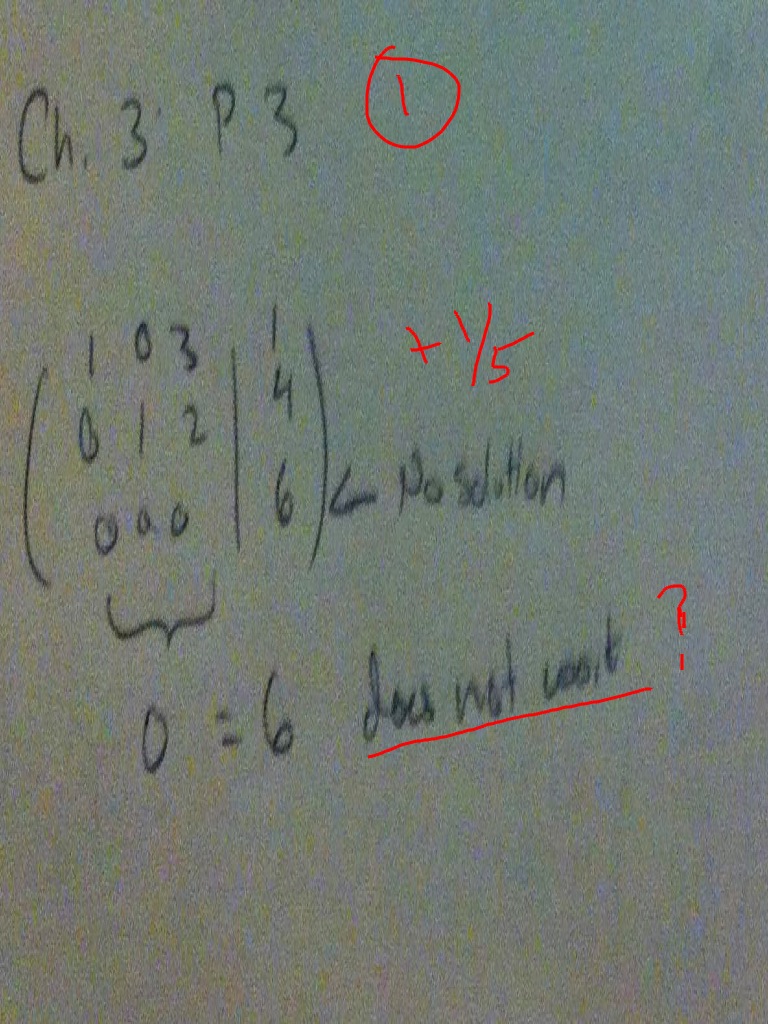 Ch. 3 P 3 1
1 0 3 | 1
0 1 2 | 4
0 0 0 | 6 ← No solution
+ 1/5
0 = 6 does not ?